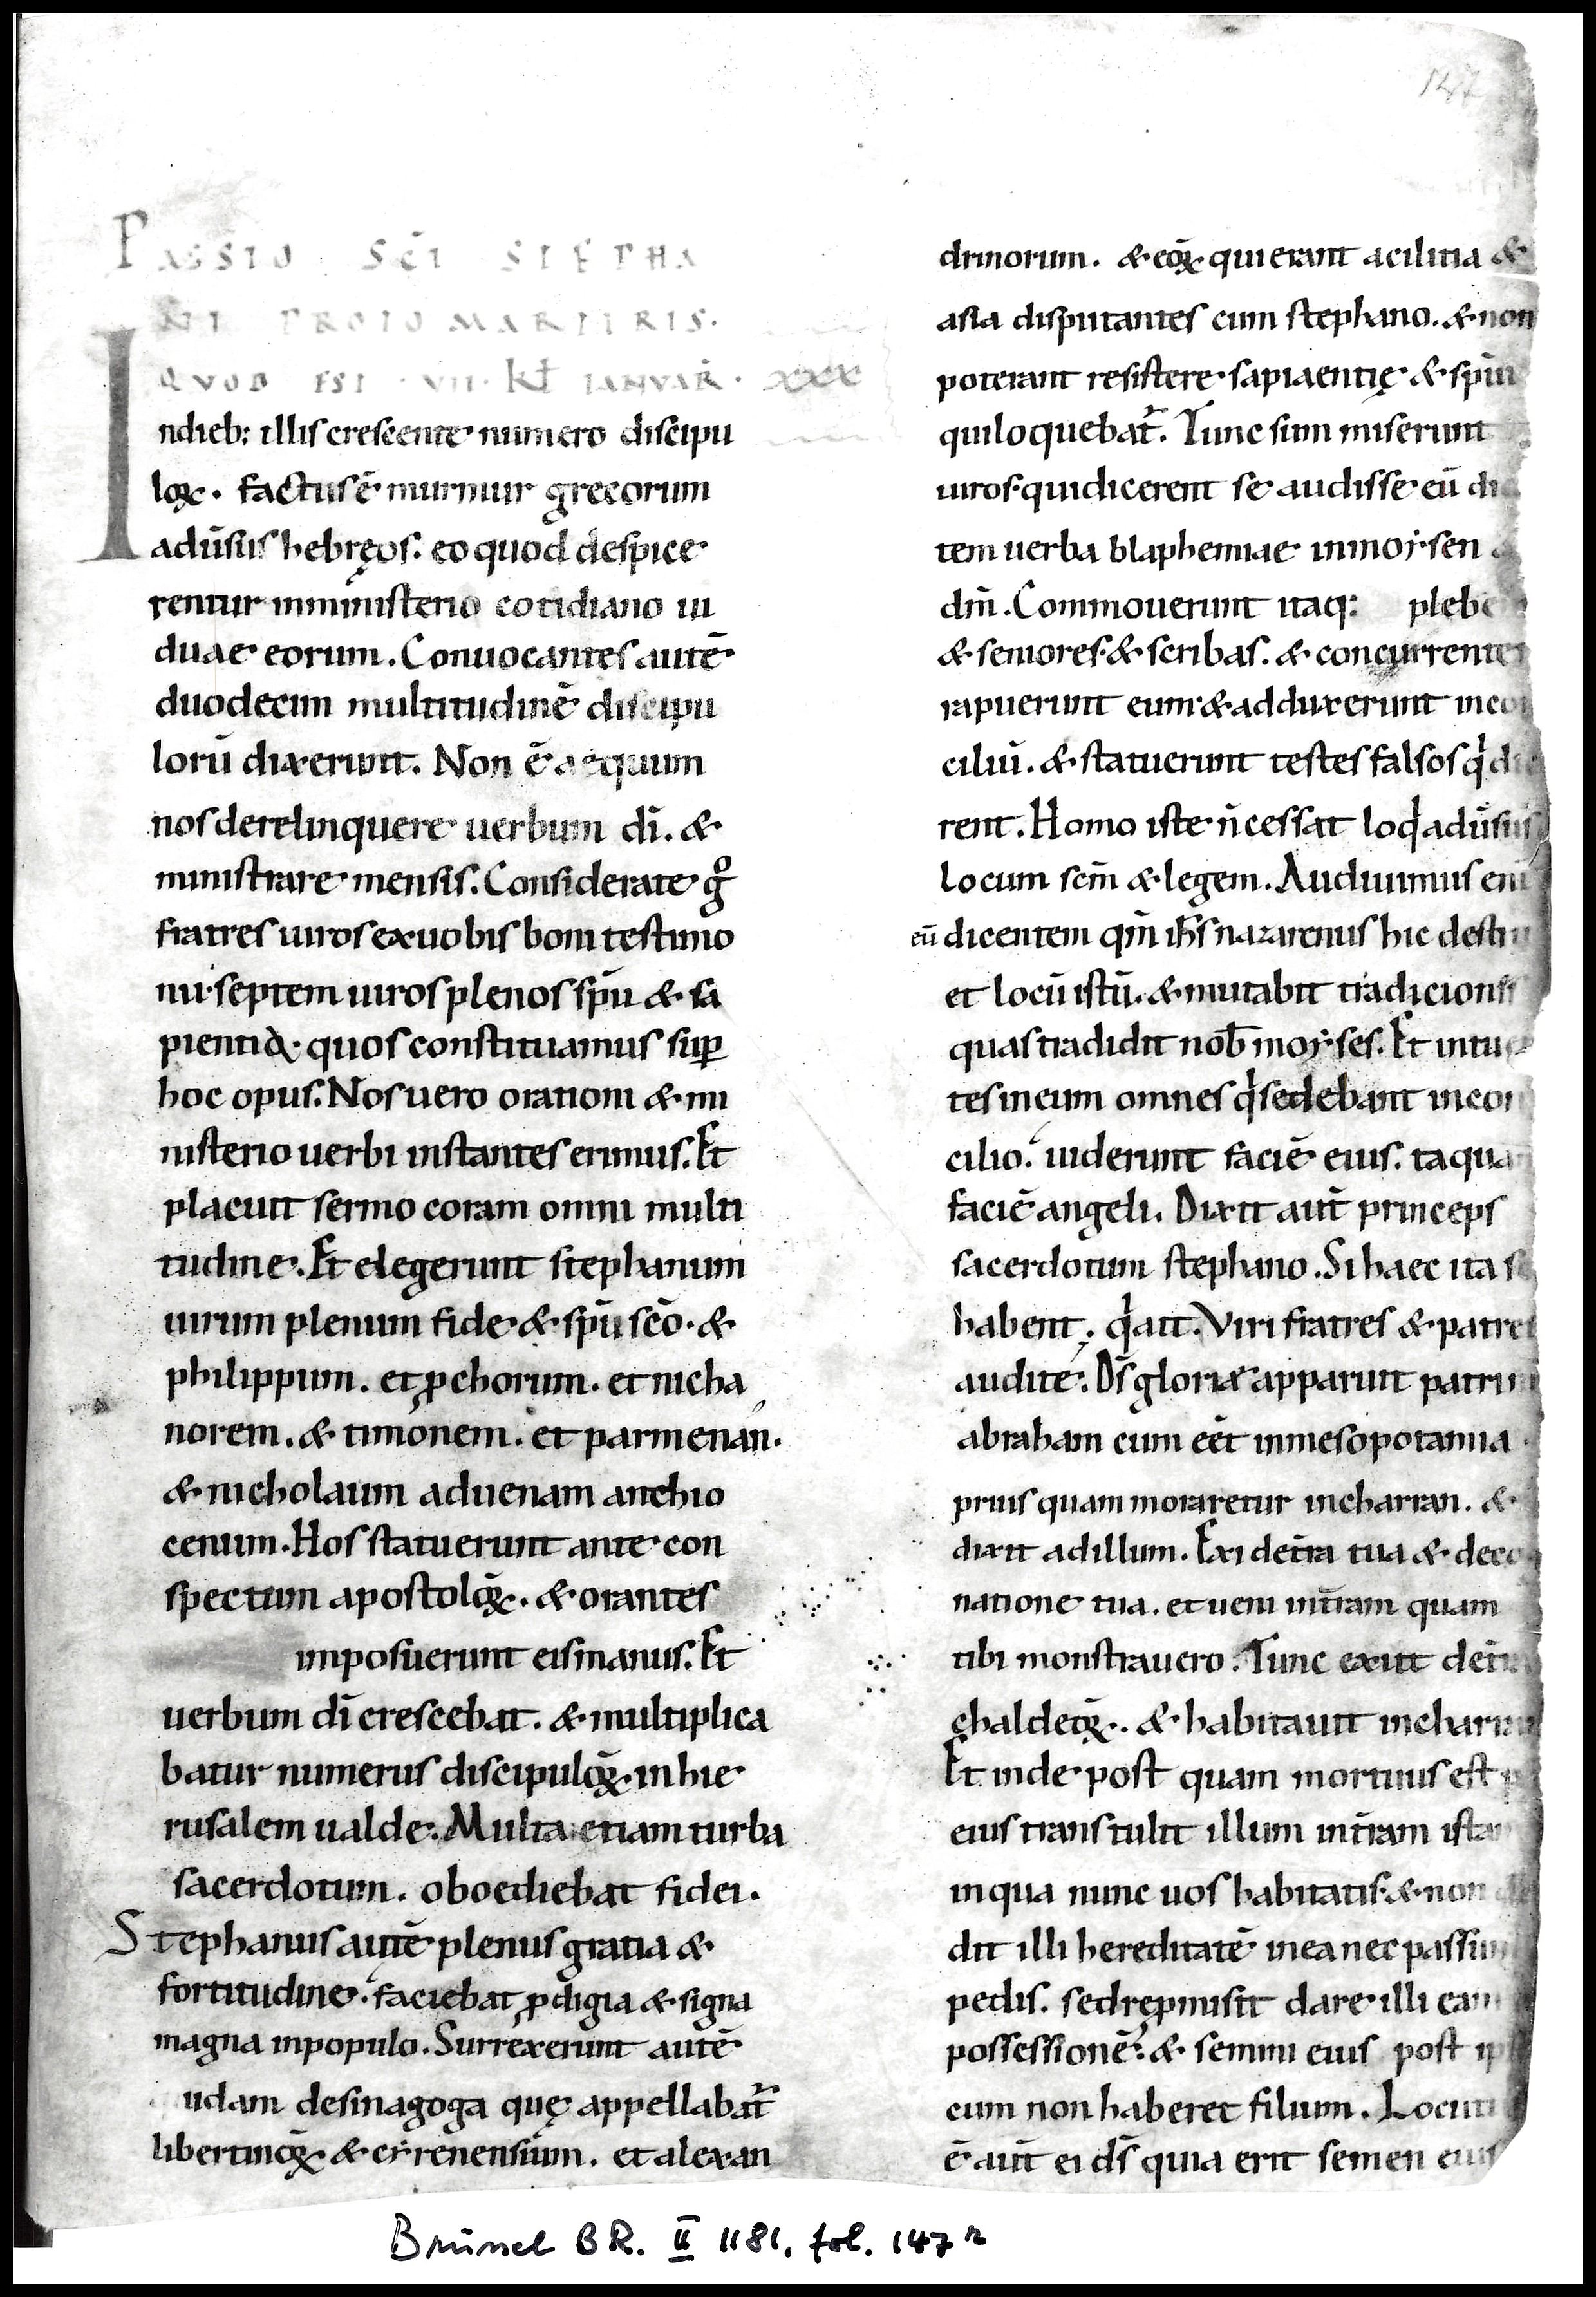 147
PASSIO SC̄I STEPHA
NI PROTOMARTIRIS.
QVOD EST · VII · KL̄ IANVAR̄ · xxx
Indieb; illis crescente numero discipu
loꝝ. factusē murmur grecorum
adūsus hebręos. eo quod despice
rentur inministerio cotidiano ui
duae eorum. Conuocantes autē
duodecim multitudinē discipu
lorū dixerunt. Non ē aequum
nos derelinquere uerbum dī. &
ministrare mensis. Considerate gͦ
fratres uiros exuobis boni testimo
nii·septem uiros plenos sp̄u & sa
pientia· quos constituamus suꝑ
hoc opus. Nos uero orationi & mi
nisterio uerbi instantes erimus. Et
placuit sermo coram omni multi
tudine. Et elegerunt stephanum
uirum plenum fide & sp̄u scō. &
philippum. et ꝓchorum. et nicha
norem. & timonem. et parmenan.
& nicholaum aduenam anthio
cenum. Hos statuerunt ante con
spectum apostoloꝝ. & orantes
imposuerunt eis manus. Et
uerbum dī crescebat. & multiplica
batur numerus discipuloꝝ. in hie
rusalem ualde. Multa etiam turba
sacerdotum. oboediebat fidei.
Stephanus autē plenus gratia &
fortitudine. faciebat ꝓdigia & signa
magna inpopulo. Surrexerunt autē
udam desinagoga quę appellabat᷑
libertinoꝝ & cẏrenensium. et alexan
drinorum. & eoꝝ qui erant acilitia &
asia disputantes cum stephano. & non
poterant resistere sapiaentię & sp̄ui
quiloquebat᷑. Tunc sum miserunt
uiros·quidicerent se audisse eū di
tem uerba blaphemiae inmoẏsen
dm̄. Commouerunt itaq; plebe
& seniores·& scribas. & concurrente
rapuerunt eum·& adduxerunt incon
ciliū. & statuerunt testes falsos qͥ di
rent. Homo iste n̄ cessat loqͥ adūsus
Locum scm̄ & legem. Audiuimus eni
eū dicentem qm̄ ih̄s nazarenus hic destru
et locū istū. & mutabit tradicions
quas tradidit nob̄ moẏses. Et intu
tes ineum omnes qͥ sedebant incon
cilio. uiderunt faciē eius. taqua
faciē angeli. Dixit aut̄ princeps
sacerdotum stephano. Si haec ita s
habent; qͥ ait. Viri fratres & patres
audite. Ds̄ gloriae apparuit patri
abraham cum eēt inmesopotamia
prius quam moraretur incharran. &
dixit adillum. Exi det̄ra tua & deco
natione tua. et ueni int̄ram quam
tibi monstrauero. Tunc exiit det̄
chaldeoꝝ. & habitauit incharra
Et inde post quam mortuus est p
eius transtulit illum int̄ram ista
inqua nunc uos habitatis·& non
dit illi hereditatē inea nec passum
pedis. sedrepmisit dare illi eam
possessionē. & semini eius post ip
cum non haberet filium. Locut
ē aut̄ ei ds̄ quia erit semen eius
Brüssel BR. II 1181, fol. 147r